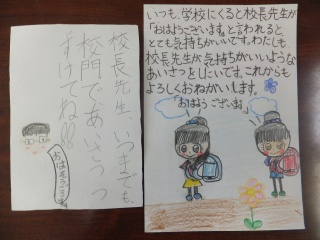 校長先生、いつまでも、
校門であいさつつ
づけてね!!
おはようございます
いつも、学校にくると校長先生が
「おはようございます。」と言われると、
とても気持ちがいいです。わたしも
校長先生が気持ちがいいような
あいさつをしたいです。これからも
よろしくおねがいします。
「おはようございます。」